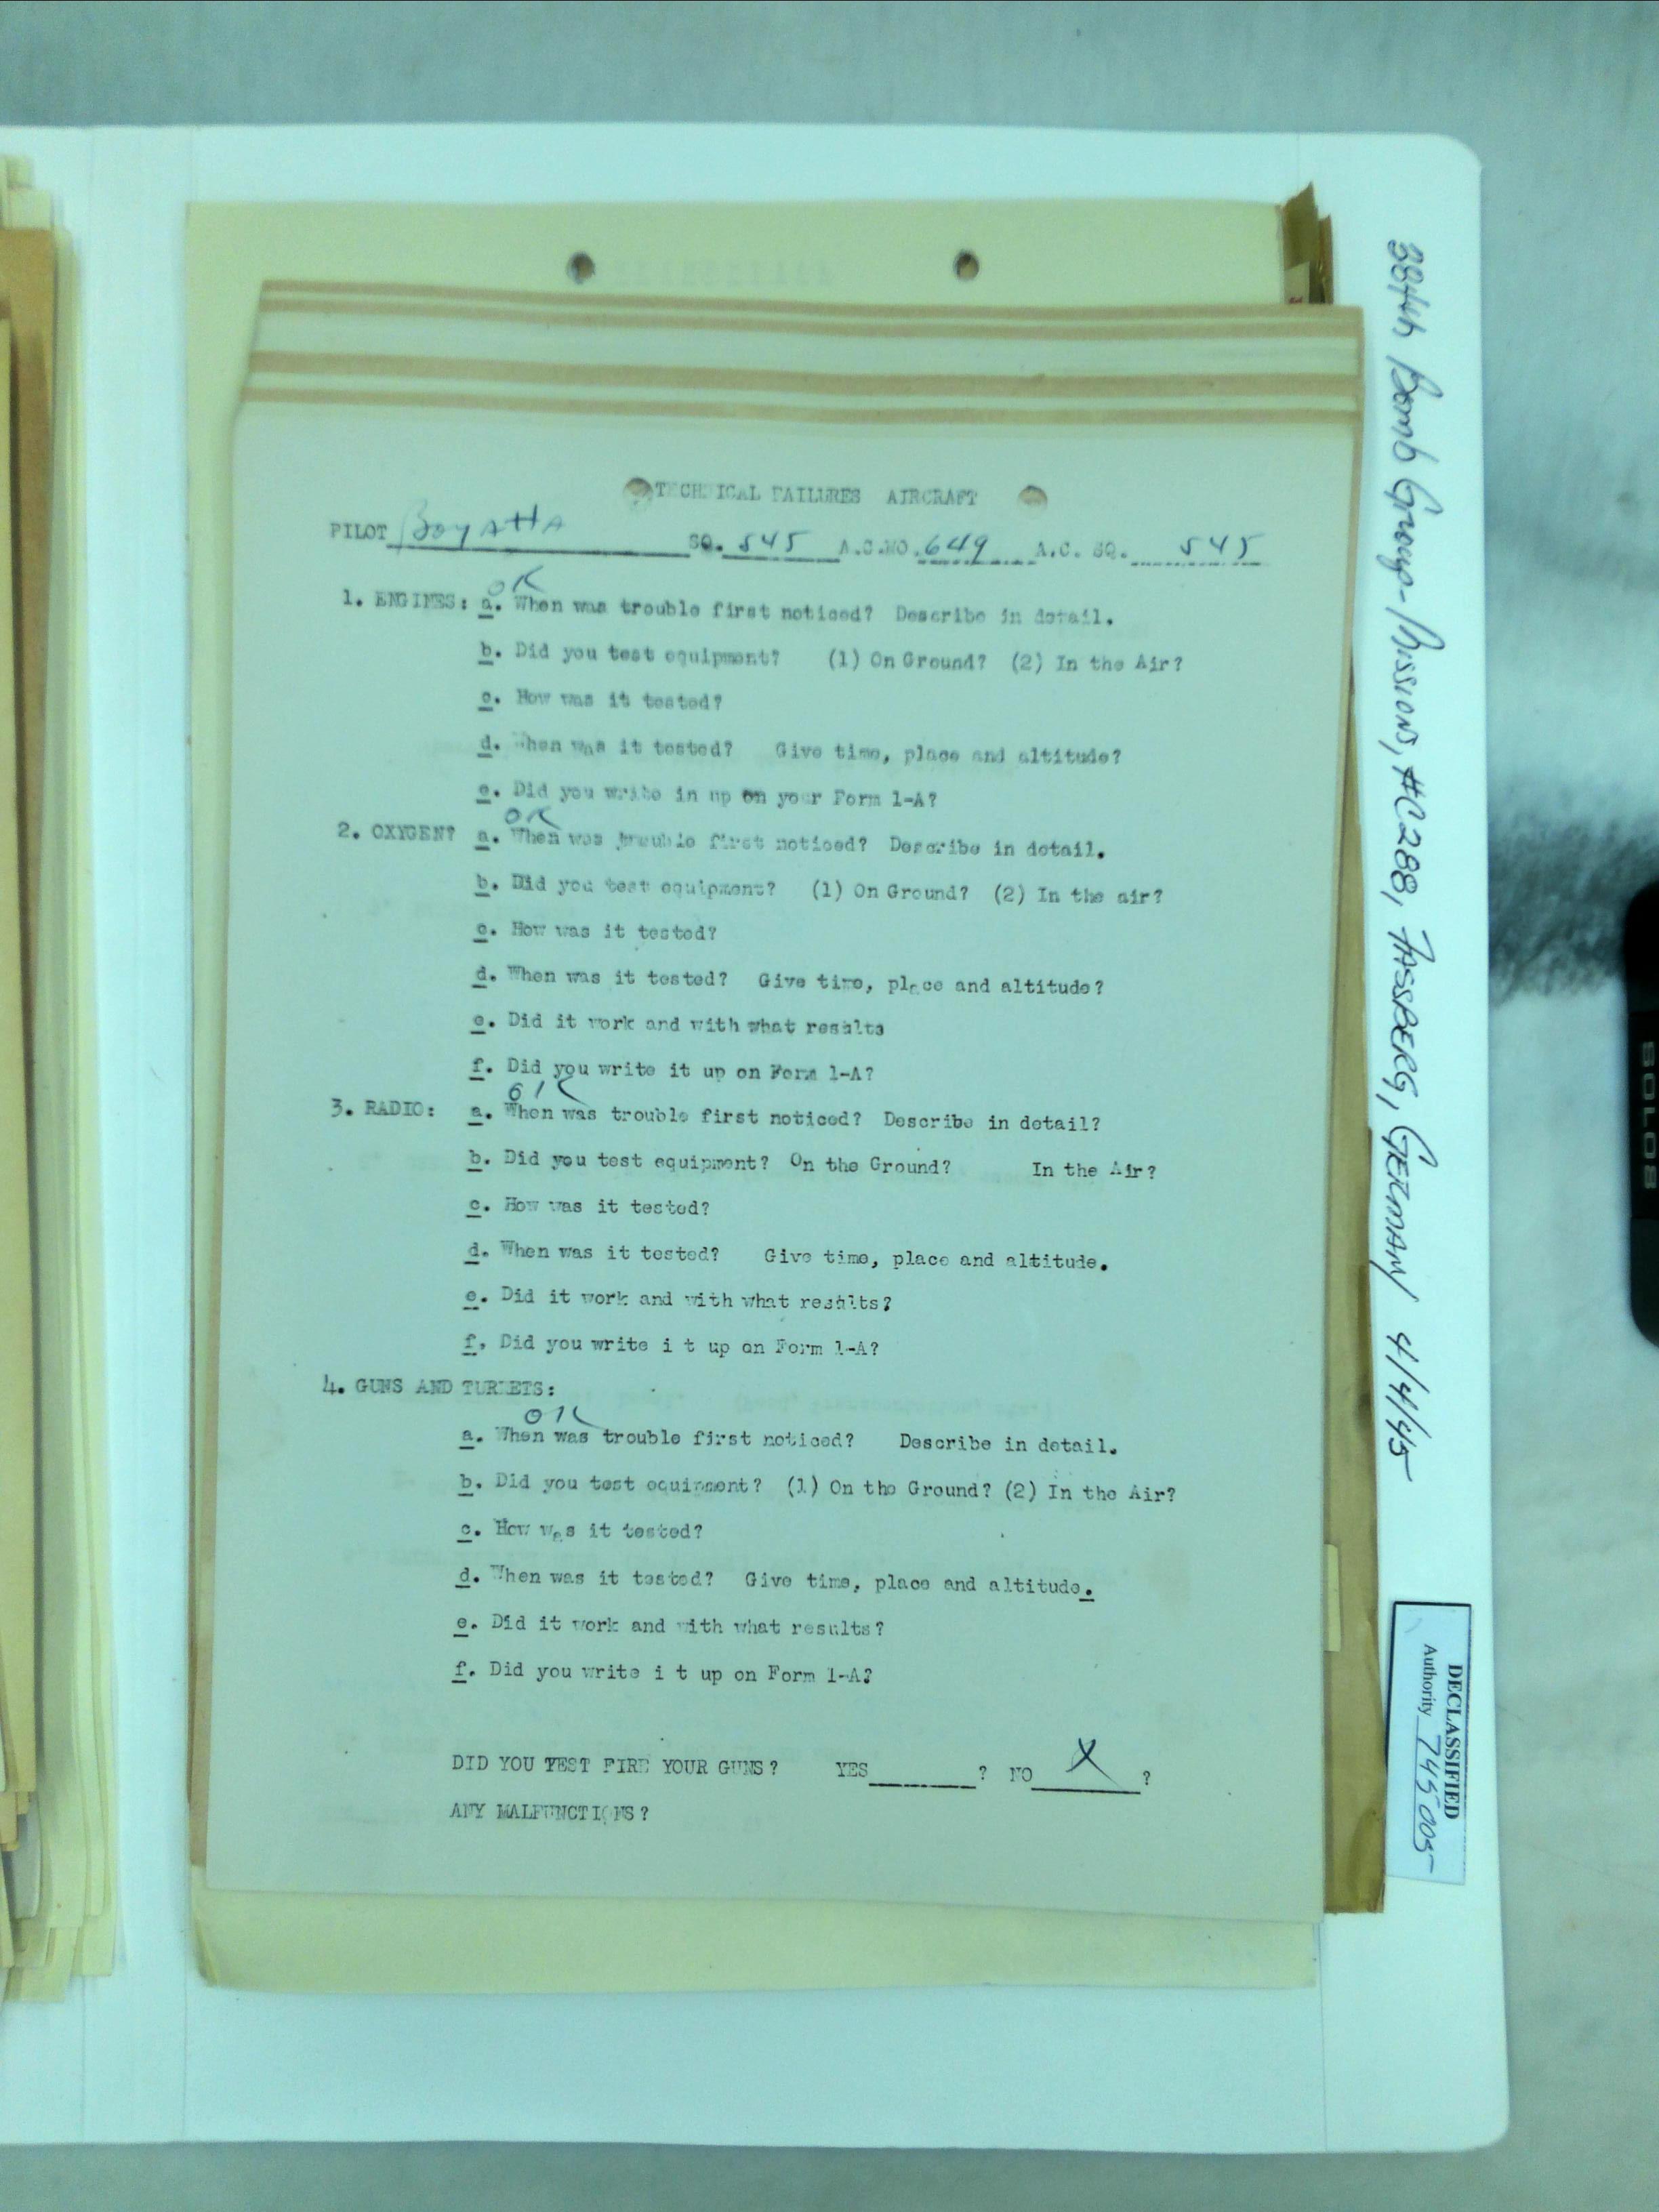 TECHNICAL FAILURES AIRCRAFT
PILOT Boyatta SQ. 545 A.C.NO. 649 A.C. SQ. 545
OK
1. ENGINES: a. When was trouble first noticed? Describe in detail.
b. Did you test equipment? (1) On Ground? (2) In the Air?
c. How was it tested?
d. When was it tested? Give time, place and altitude?
e. Did you write in up on your Form 1-A?
OK
2. OXYGEN? a. When was trouble first noticed? Describe in detail.
b. Did you test equipment? (1) On Ground? (2) In the air?
c. How was it tested?
d. When was it tested? Give time, place and altitude?
e. Did it work and with what results
f. Did you write it up on Form 1-A?
OK
3. RADIO: a. When was trouble first noticed? Describe in detail?
b. Did you test equipment? On the Ground? In the Air?
c. How was it tested?
d. When was it tested? Give time, place and altitude.
e. Did it work and with what results?
f. Did you write i t up on Form 1-A?
4. GUNS AND TURRETS:
OK
a. When was trouble first noticed? Describe in detail.
b. Did you test equipment? (1) On the Ground? (2) In the Air?
c. How was it tested?
d. When was it tested? Give time, place and altitude.
e. Did it work and with what results?
f. Did you write i t up on Form 1-A?
DID YOU TEST FIRE YOUR GUNS? YES ? NO X ?
ANY MALFUNCTIONS?
384th Bomb Group - Mission, #C288, FASSBERG, GERMANY 4/4/45
DECLASSIFIED
Authority 745005
SOLO8